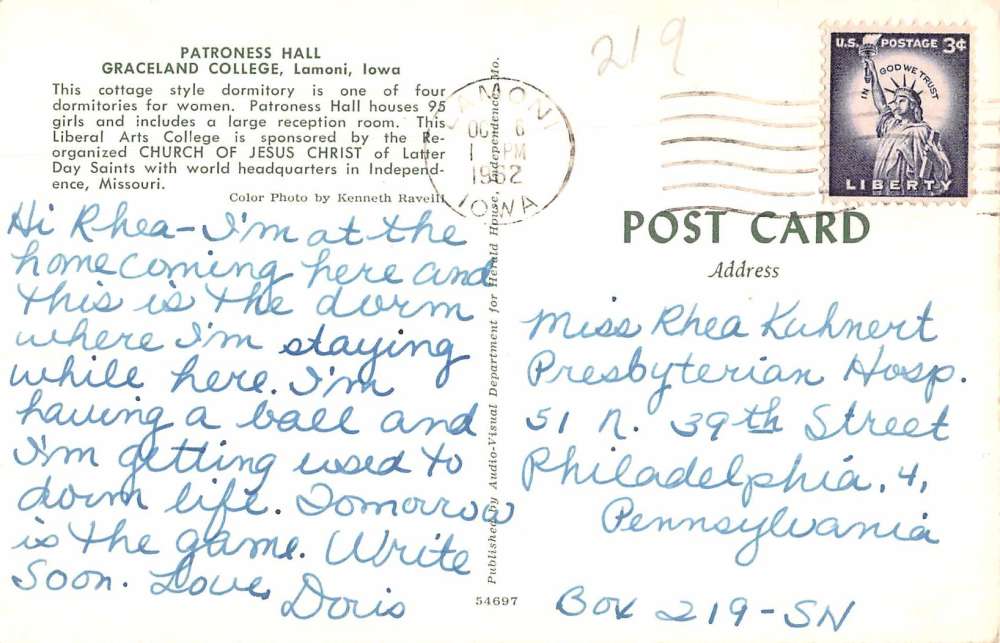 PATRONESS HALL
GRACELAND COLLEGE, Lamoni, Iowa
This cottage style dormitory is one of four
dormitories for women. Patroness Hall houses 95
girls and includes a large reception room. This
Liberal Arts College is sponsored by the Re-
organized CHURCH OF JESUS CHRIST of Latter
Day Saints with world headquarters in Independ-
ence, Missouri.
Color Photo by Kenneth Raveill
Hi Rhea-I'm at the
homecoming here and
this is the dorm
where I'm staying
while here. I'm
having a ball and
I'm getting used to
dorm life. Tomorrow
is the game. Write
Soon. Love,
Doris
Published by Audio-Visual Department for Herald House, Independence, Mo.
54697
219
LAMONI
OCT 6
1 PM
1962
IOWA
U.S. POSTAGE 3¢
IN GOD WE TRUST
LIBERTY
POST CARD
Address
Miss Rhea Kuhnert
Presbyterian Hosp.
51 N. 39th Street
Philadelphia, 4,
Pennsylvania
Box 219-SN